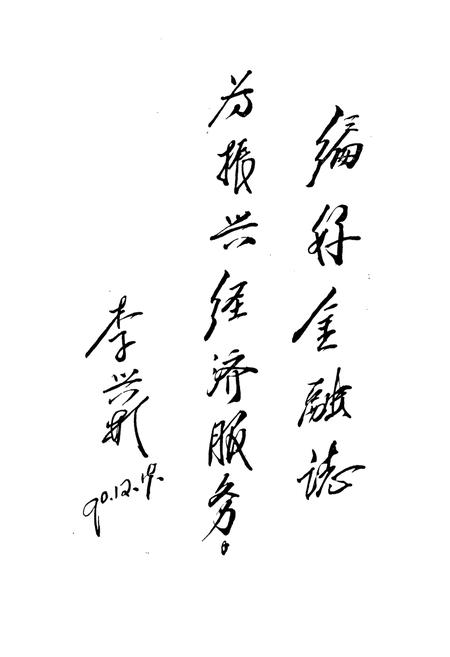 编好金融誌
为振兴经济服务。
李兴彬
90.12.19.